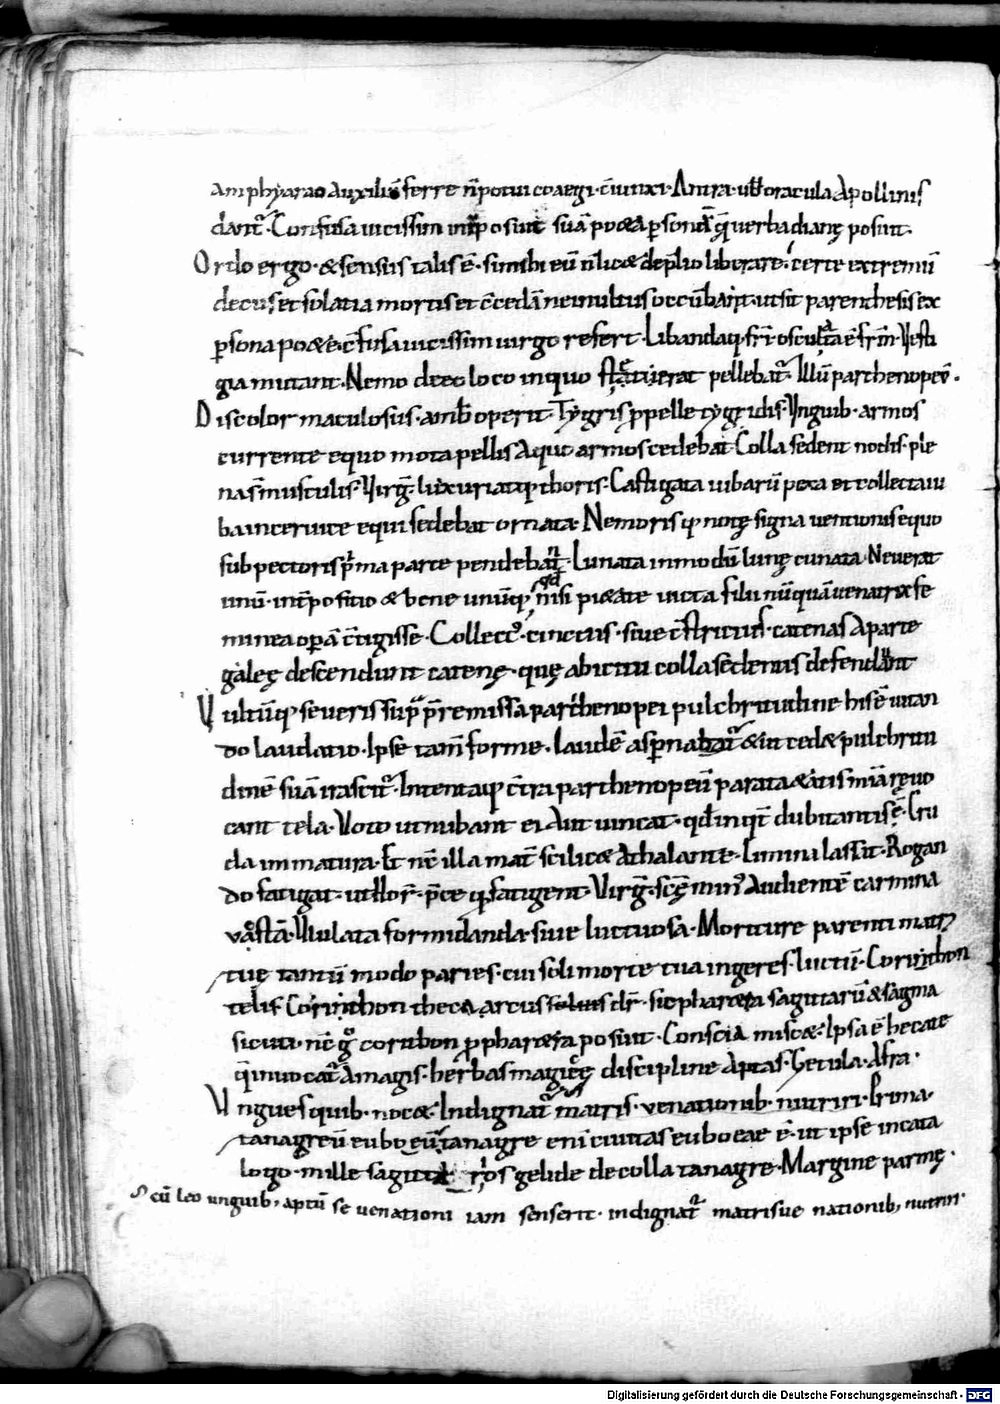 amphyarao auxiliū ferre n̄ potui coaegi · c̄iunxi · Antra · ubi oracula Apollinis
dant᷒ · Confusa uicissim int̄posuit suā poeta ꝑsonā q̄ uerba dianę posuit ·
Ordo ergo · & sensus talis ē · si mihi eū n̄ lic& de p̄lio liberare · certe extremū
decus et solatia mortis et c̄cedā ne inultus occūbat · ut sit parenthesis ex
ꝑsona poetę · c̄fusa uicissim uirgo refert · Libandaq · fr̄i oscula ē frm̄ · Vesti
gia mutant · Nemo de eo loco in quo steterat pellebat᷒ · Illū parthenopeū ·
Discolor maculosus · ambit operit · Tygris ꝓ pelle tygridis · Vnguib · armos
currente equo mota pellis Aquę armos cedebat Colla sedent nodis · ple
na s̄ musculis · Virg̅ · luxuriatq thoris · Castigata uibarū pexa et collecta iu
ba in ceruice equi sedebat ornata · Nemoris q notę signa uentionis equo
sub pectoris p̄ma parte pendebat᷒ · Lunata in modū lunę cunata · Neuerat
unū · int̄positio & bene unūq · qd nisi pietate uicta filii nūquā uenatrix fe
minea oꝑa c̄tigisse · Collect᷒ · cinctus · siue c̄strictus · catenas A parte
galeę descendunt catenę · quę ab ictu colla sedentis defendant
Vultūq seueris supra p̄remissa parthenopei pulchritudine his ē uitan
do laudatio · Ipse tam̄ forme · laudē asꝑnabat᷒ & it ced& pulchritu
dinē suā irascit᷒ · Intentaq c̄tra parthenopeū parata & atis miā reuo
cant tela · Voto ut nubant ei Aut uincat · qd̄ inq̄t dubitantis ē · Cru
da immatura · Et nc̄ illa mat̄ scilic& Athalante · Limina lassat · Rogan
do fatigat · ut flor̄ · p̄ce q fatigent · Virg̅ · scē mir᷒ Audientē carmina
uastā · Vlulata formidanda · siue luctuosa · Moriture parenti matri
tuę tantū modo paries · cui soli morte tua ingeres · luctū · Corinthon
telis Corinthon theca arcus solius dr̄ · sic pharetra sagittarū & sagma
sicuti · nc̄ g̊ coriton ꝓ pharetra posuit · Conscia misc& · Ipsa ē hecate
q̄ inuocat᷒ A magis · herbas magicę disciplinę Aptas · Getula · Afra ·
Vngues quib · noc& · Indignat᷒ matris · uenationib · nutriri · Prima ·
tanagreū eubo eū · tanagre eni ciuitas euboeae ē · ut ipse in cata
logo · mille sagitt ros gelide de colla tanagre · Margine parmę ·
cū leo unguib, aptū se uenationi iam senserit · indignat᷒ matris ue nationib, nutriri ·
Digitalisierung gefördert durch die Deutsche Forschungsgemeinschaft · DFG